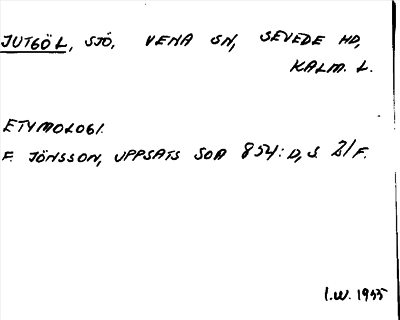 JUTGÖL, SJÖ, VENA SN, SEVEDE HD,
KALM. L.
ETYMOLOGI.
F. JÖNSSON, UPPSATS SOA 854: D, S. 21 F.
I.W. 1955